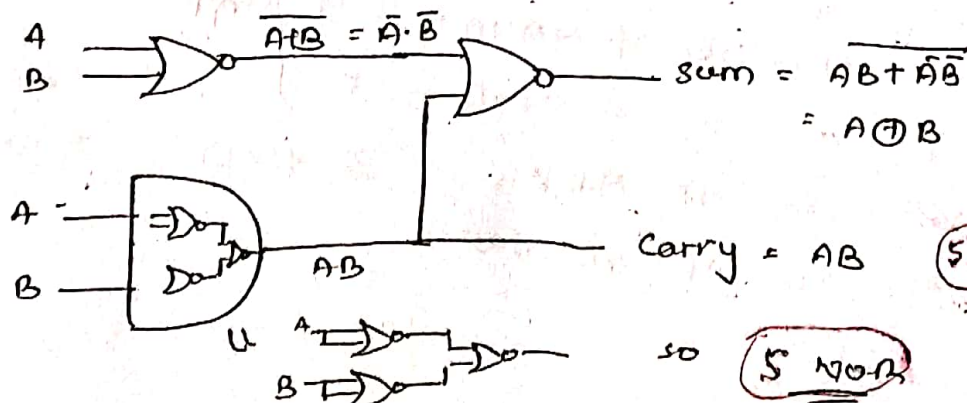 A
B
A+B̅ = Ā·B̅
sum = A̅B̅ ̅+̅ ̅Ā̅B̅
= A⊕B
A
B
AB
Carry = AB
(5
A
B
so
5 NOR